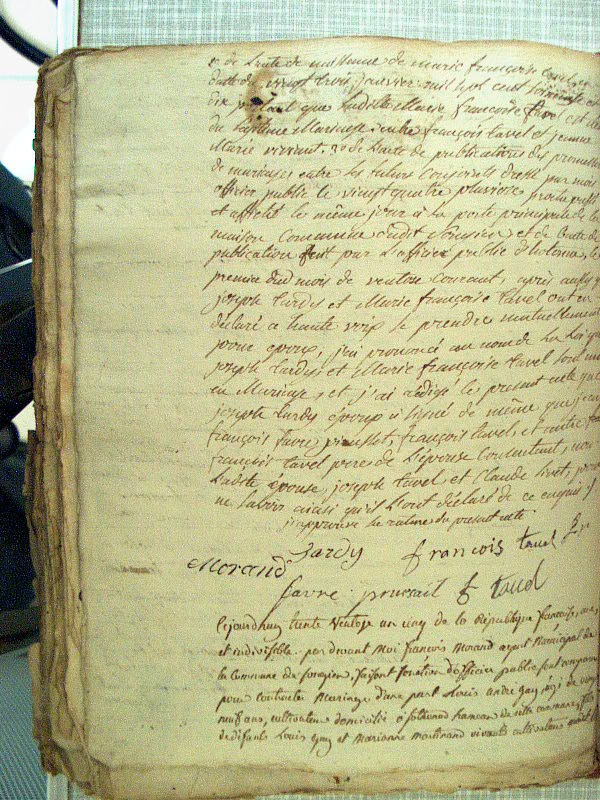 de l'acte de naissance de marie françoise tavel en
datte du vingt trois janvier mil sept cent soixante et
dix portant que laditte Marie françoise tavel est née
du légitime Mariage entre françois tavel et jeanne
Marie 3º de l'acte de publications des promesses
de mariages entre les futurs Conjoints dressé par mois
officier public le vingt quatre pluviose
et affiché les même jour à la porte principale de la
maison Commune dudit et de l'acte de
publication fait par l'officier public d'hotonne, le
premier dud mois de ventose courant, après aussy que
joseph tardy et Marie françoise tavel ont eu
déclaré a haute voix se prendre mutuellement
pour époux, j'ai prononcé au nom de la Loi que
joseph tardy et Marie françoise tavel sont unis
en Mariage, et j'ai rédigé le present acte que
joseph tardy époux a signé de même que jean
françois favre françois tavel, et autre
françois tavel pere de l'épouse Consentant, non
Laditte épouse, joseph tavel et Claude pour
ne savoir ainsi qu'ils l'ont déclaré de ce enquis
j'approuve la rature du present acte
tardy françois tavel
Morand
favre f tavel
Cejourdhuy trente ventose an de la République francaise, une,
et indivisible. par devant Moi François Morand agent Municipal de
la Commune de songieu, faisant fonction d'officier public sont comparus
pour contracter Mariage d'une part Louis andré gay, agé de vingt
neuf ans, cultivateur domicilié à hameau de cette commune, fils
de defunts Louis gay et Marianne vivants cultivateurs